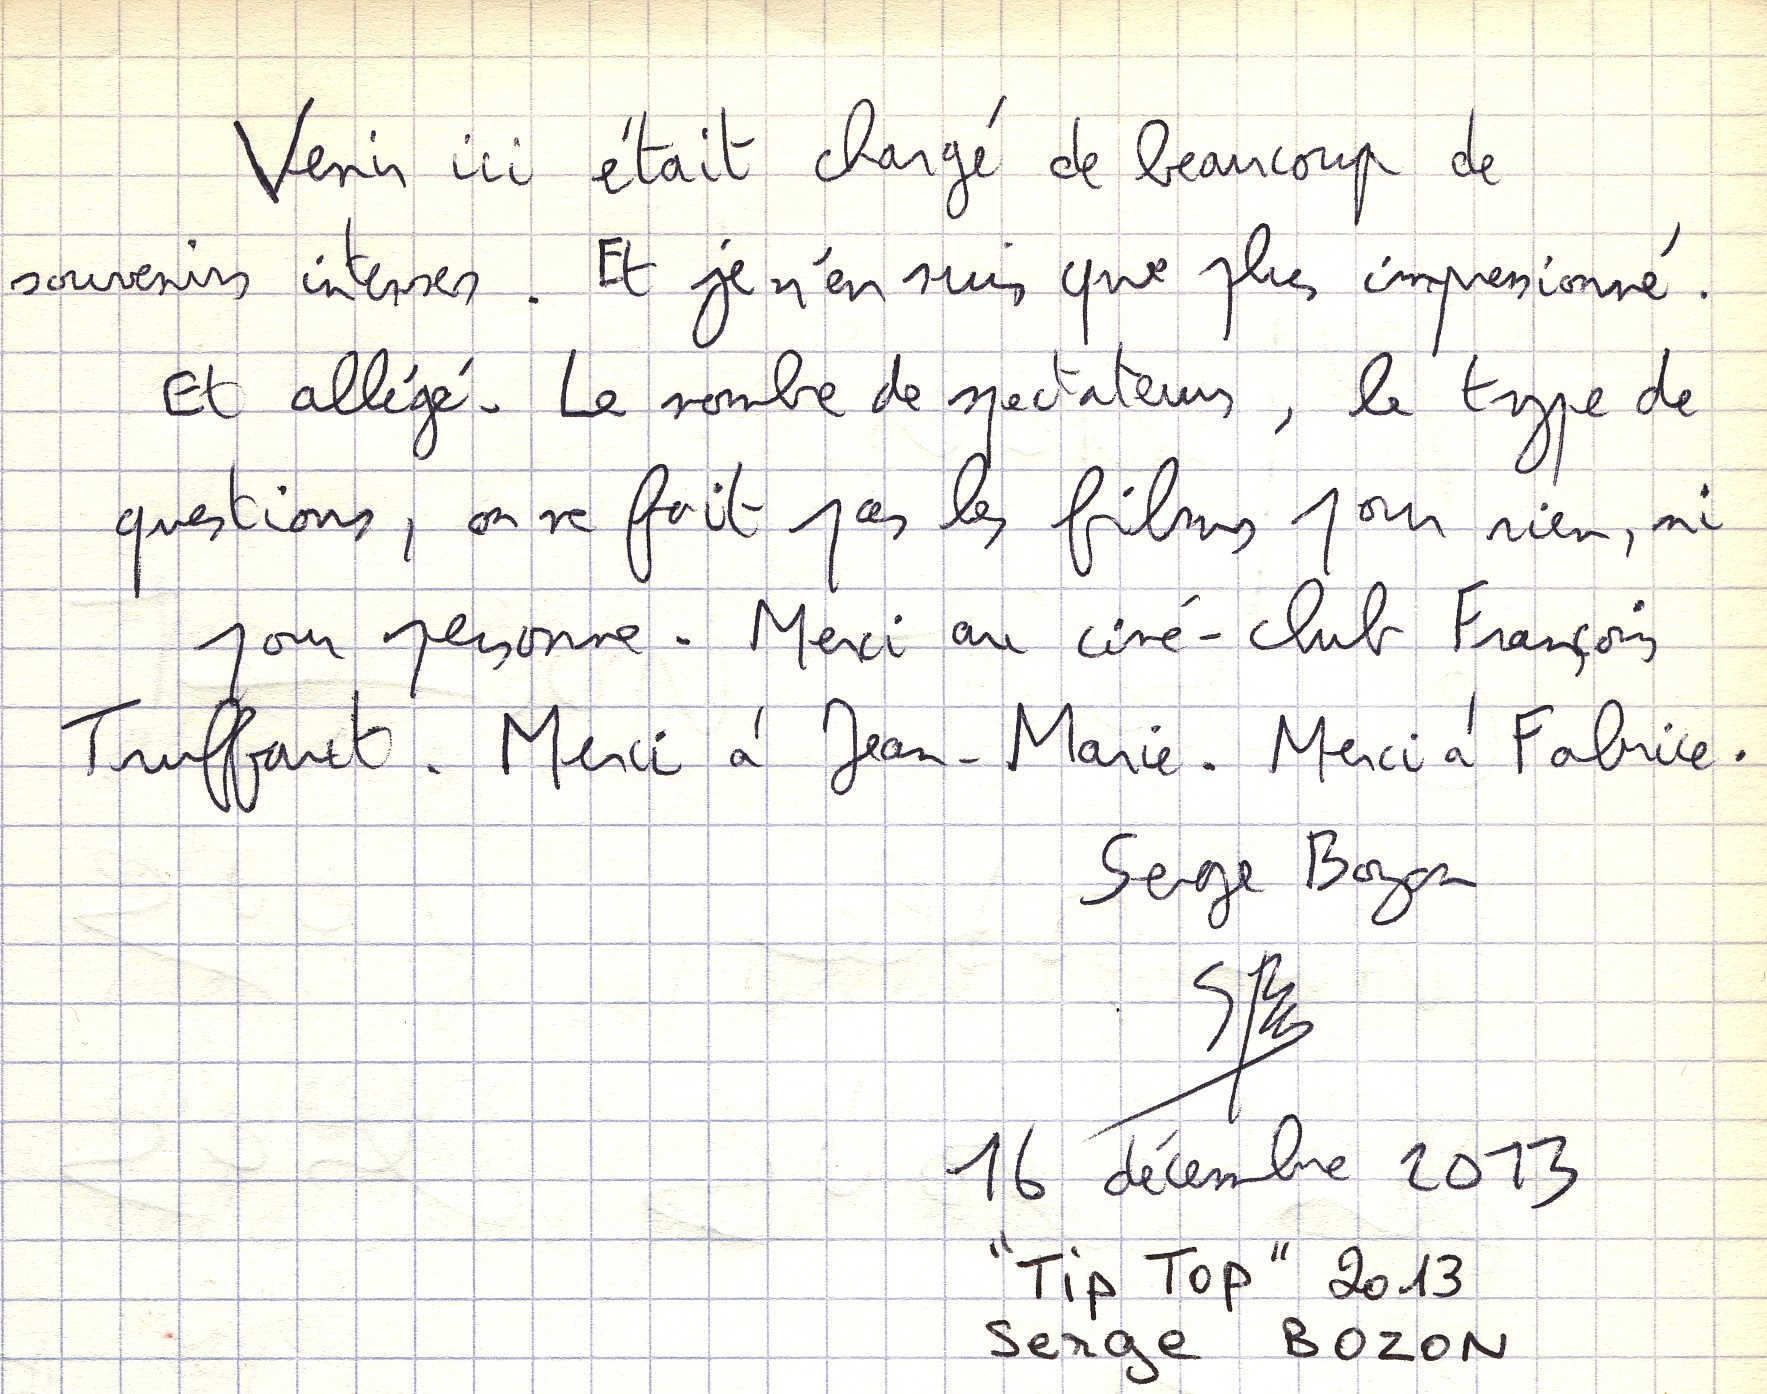 Venir ici était chargé de beaucoup de
souvenirs intenses. Et je n'en suis que plus impressionné.
Et allégé. Le nombre de spectateurs, le type de
questions, on ne fait pas les films pour rien, ni
pour personne. Merci au ciné-club François
Truffaut. Merci à Jean-Marie. Merci à Fabrice.
Serge Bozon
SB
16 décembre 2013
"Tip Top" 2013
Serge BOZON